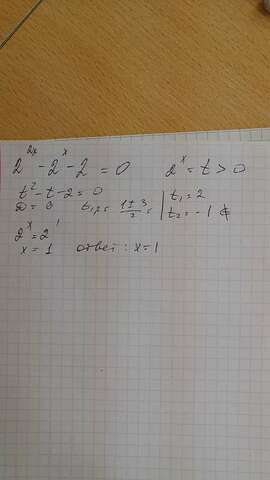 2^{2x} - 2^x - 2 = 0    2^x = t > 0
t² - t - 2 = 0
D = 9    t₁,₂ = \frac{1 ± 3}{2} = | t₁ = 2
t₂ = -1 ∉
2^x = 2^1
x = 1    ответ: x = 1